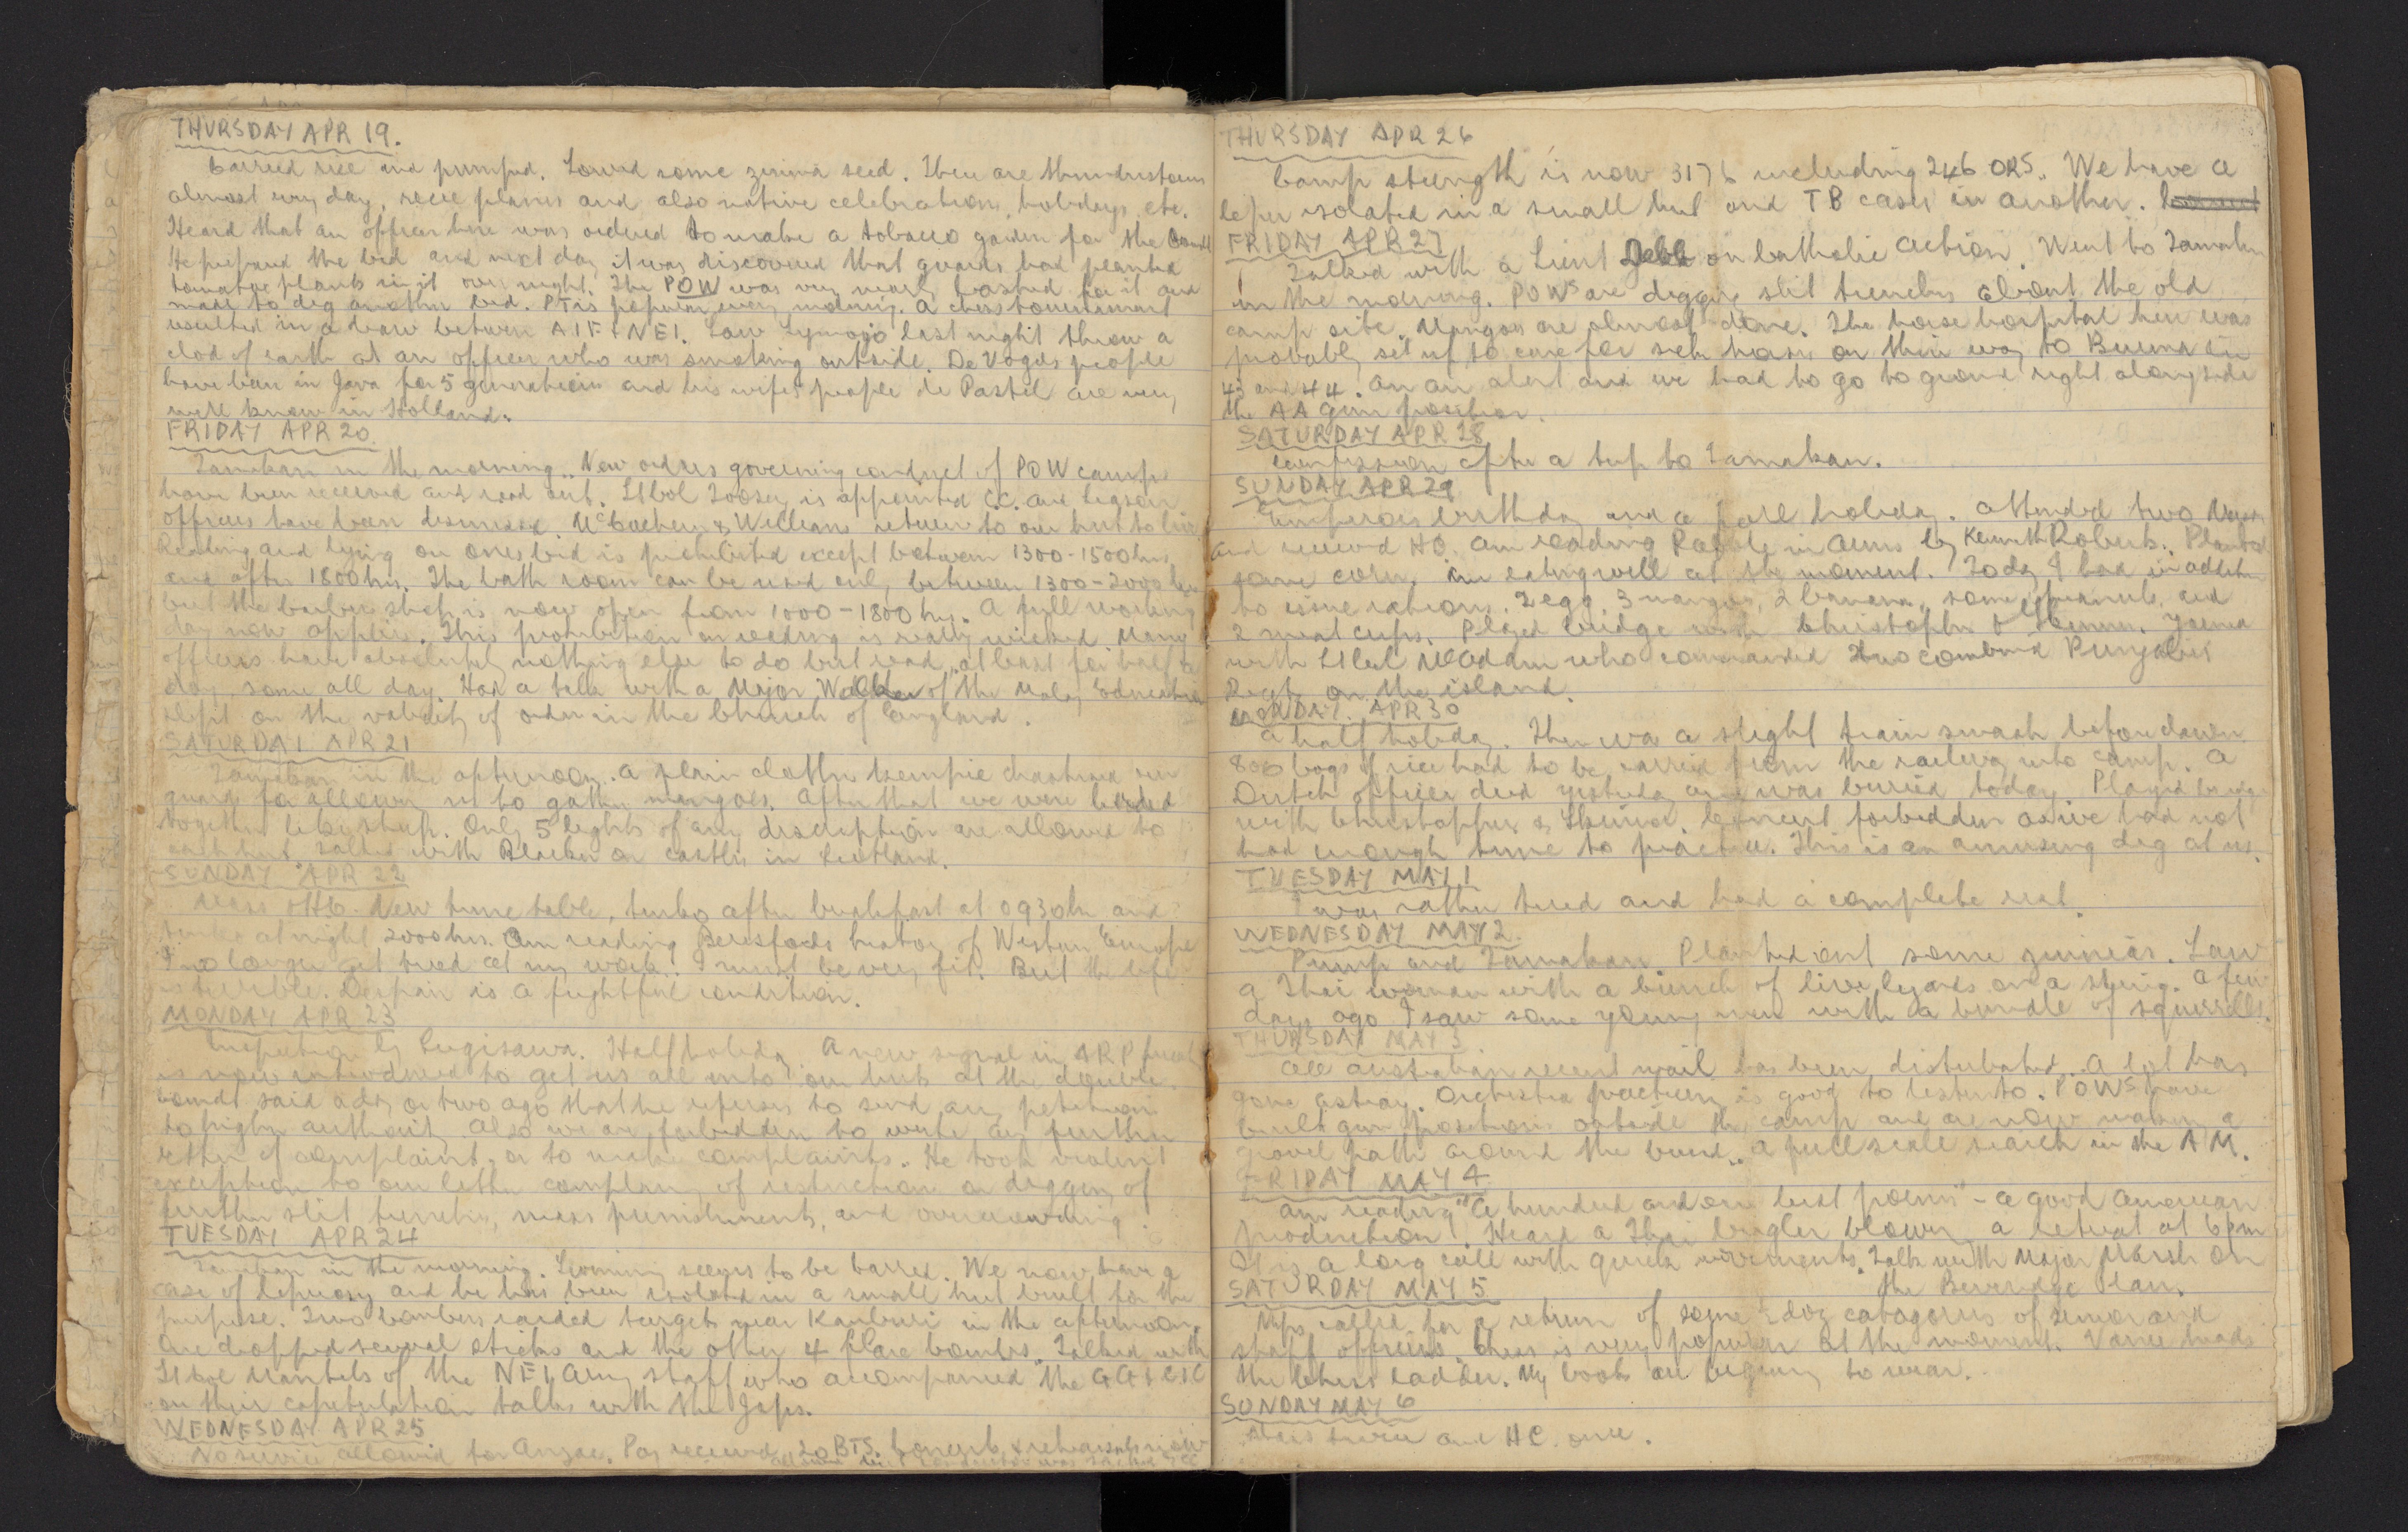 THURSDAY APR 19.
Carried rice and pumped. Sowed some zinnia seed. There are thunderstorms
almost every day, recce planes and also native celebrations, holidays etc.
Heard that an officer here was ordered to make a tobacco garden for the
He prepared the bed and next day it was discovered that guards had planted
tomatoe plants in it over night. The POW was very nearly bashed for it and
made to dig another bed. PT is popular every morning. A chess tournament
resulted in a draw between AIF & NEI. Saw last night throw a
clod of earth at an officer who was smoking outside. De Vogels people
have been in Java for 5 generations and his wifes people de Pastel are very
well know in Holland.
FRIDAY APR 20
Tamakan in the morning. New orders governing conduct of POW camps
have been received and read out. Lt Col Toosey is appointed C.C. and liason
officers have been dismissed. & Williams return to our hut to live
Reading and lying on ones bed is prohibited except between 1300-1500hrs
and after 1800hrs. The bath room can be used only between 1300-2000 hrs
but the barber shop is now open from 1000-1800 hrs. A full working
day now applies. This prohibition on reading is really wicked. Many
officers have absolutely nothing else to do but read, at least for half the
day, some all day. Had a talk with a Major Walker of the Malay Education
Dept on the validity of orders in the Church of England.
SATURDAY APR 21
Tamakan in the afternoon. A plain clothes kempie chastised our
guard for allowing us to gather mangoes. After that we were herded
together like sheep. Only 5 lights of any description are allowed to
each hut. Talked with on castles in Scotland.
SUNDAY APR 22
Mass & HC. New time table, tenko after breakfast at 0930hr and
tenko at night 2000hrs. Am reading Beresfords history of Western Europe
I no longer get tired at my work. I must be very fit. But the life
is terrible. Despair is a frightful condition.
MONDAY APR 23
Inspection by Sugisawa. Half holiday. A new signal in ARP
is now introduced to get us all into our huts at the double.
Comdt said a day or two ago that he refuses to send any petition
to higher authority. Also we are forbidden to write any further
letter of complaint, or to make complaints. He took violent
exception to our letter complaing of restriction on digging of
further slit trenches, mass punishments, and overcrowding.
TUESDAY APR 24
Tamakan in the morning. Swimming seems to be barred. We now have a
case of leprosy and he has been isolated in a small hut built for the
purpose. Two bombers raided targets near Kanburi in the afternoon.
One dropped several sticks and the other 4 flare bombs. Talked with
Lt Col of the NEI Army staff who accompanied the
on their capitulation talks with the Japs.
WEDNESDAY APR 25
No service allowed for Anzac. Pay received 20 BTS. Concerts & rehearsals now
THURSDAY APR 26
Camp strength is now 3176 including 246 ORs. We have a
leper isolated in a small hut and TB cases in another.
FRIDAY APR 27
Talked with a Lieut on Catholic Action. Went to Tamakan
in the morning. POWs are digging slit trenches about the old
camp site. Mangoes are almost done. The horse hospital here was
probably set up to care for sick horses on their way to Burma in
43 and 44. On an alert and we had to go to ground right alongside
the AA gun position.
SATURDAY APR 28
Confession after a trip to Tamakan.
SUNDAY APR 29
Emperors birthday and a full holiday. Attended two Masses
and received HC. Am reading Rabble in Arms by Kenneth Roberts. Planted
some corn. Am eating well at the moment. Today I had in addition
to issue rations, 2 egg, 3 mangoes, 2 banana, some peanuts and
2 meat cups. Played bridge with Christopher &
with Lt Col who commanded two combined Punjabis
Regts on the island.
MONDAY APR 30
A half holiday. There was a slight train smash before dawn.
800 bags of rice had to be carried from the railway into camp. A
Dutch officer died yesterday and was buried today. Played bridge
with Christopher & Concert forbidden as we had not
had enough time to practice. This is an amusing dig at us.
TUESDAY MAY 1
I was rather tired and had a complete rest.
WEDNESDAY MAY 2.
Pump and Tamakan. Planted out some zinnias. Saw
a Thai woman with a bunch of live lizards on a string. A few
days ago I saw some young men with a bundle of squirrells.
THURSDAY MAY 3
All Australian recent mail has been distributed. A lot has
gone astray. Orchestra practising is good to listen to. POWs have
built gun positions outside the camp and are now making a
gravel path around the bund. A full scale search in the A.M.
FRIDAY MAY 4
Am reading "A hundred and one best poems" - a good American
production. Heard a Thai bugler blowing a retreat at 6pm
It is a long call with quick movements. Talk with Major Marsh on
the Beveridge Plan.
SATURDAY MAY 5
Nips called for a return of some doz catagories of senior and
staff officers. Chess is very popular at the moment. Vance heads
the chess ladder. My boots are beginning to wear.
SUNDAY MAY 6
Mass twice and HC. once.